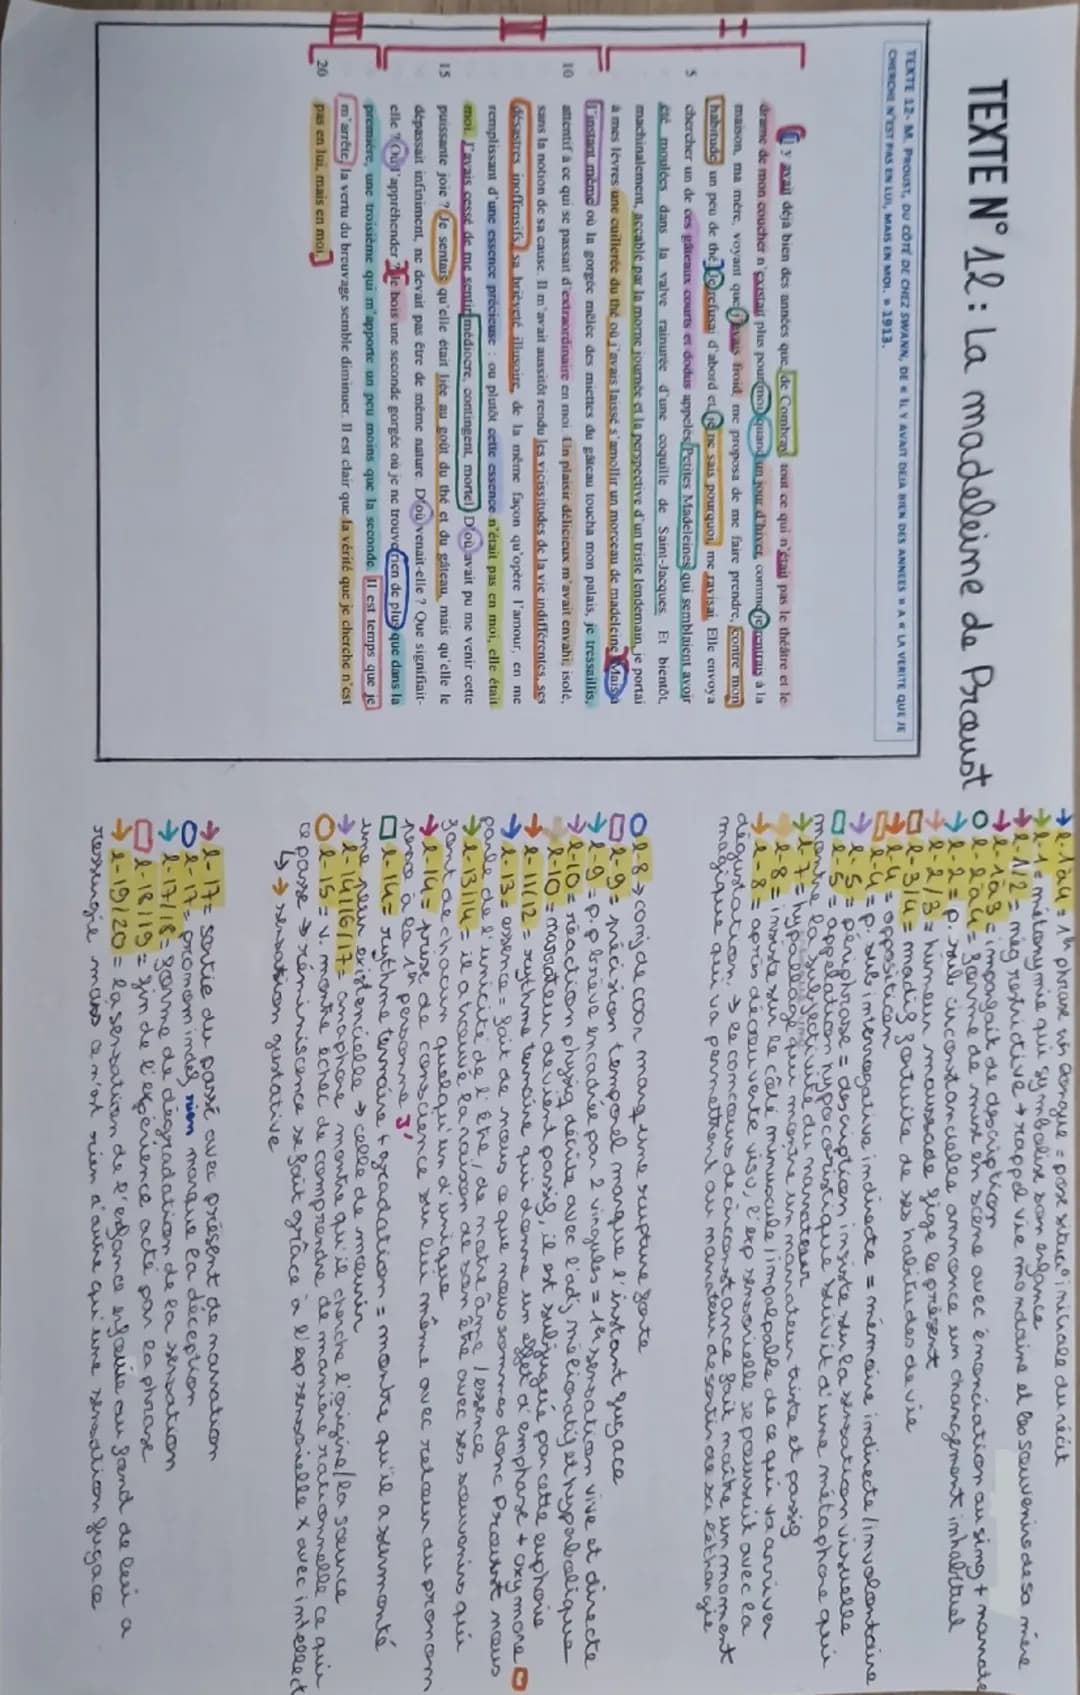 TEXTE N° 12 : La madeleine de Proust
TEXTE 12- M. PROUST, DU CÔTÉ DE CHEZ SWANN, DE « IL Y AVAIT DEJA BIEN DES ANNEES » A « LA VERITE QUE JE
CHERCHE N'EST PAS EN LUI, MAIS EN MOI. » 1913.
I
Il y avait déjà bien des années que, de Combray, tout ce qui n'était pas le théâtre et le
drame de mon coucher n'existait plus pour moi, quand un jour d'hiver, comme je rentrais à la
maison, ma mère, voyant que j'avais froid, me proposa de me faire prendre, contre mon
habitude, un peu de thé. Je refusai d'abord et, je ne sais pourquoi, me ravisai. Elle envoya
5 chercher un de ces gâteaux courts et dodus appelés Petites Madeleines qui semblaient avoir
été moulées dans la valve rainurée d'une coquille de Saint-Jacques. Et bientôt,
machinalement, accablé par la morne journée et la perspective d'un triste lendemain, je portai
à mes lèvres une cuillerée du thé où j'avais laissé s'amollir un morceau de madeleine. Mais à
II
l'instant même où la gorgée mêlée des miettes du gâteau toucha mon palais, je tressaillis,
10 attentif à ce qui se passait d'extraordinaire en moi. Un plaisir délicieux m'avait envahi, isolé,
sans la notion de sa cause. Il m'avait aussitôt rendu les vicissitudes de la vie indifférentes, ses
désastres inoffensifs, sa brièveté illusoire, de la même façon qu'opère l'amour, en me
remplissant d'une essence précieuse : ou plutôt cette essence n'était pas en moi, elle était
moi. J'avais cessé de me sentir médiocre, contingent, mortel. D'où avait pu me venir cette
15 puissante joie ? Je sentais qu'elle était liée au goût du thé et du gâteau, mais qu'elle le
dépassait infiniment, ne devait pas être de même nature. D'où venait-elle ? Que signifiait-
elle ? Où l'appréhender ? Je bois une seconde gorgée où je ne trouve rien de plus que dans la
III
première, une troisième qui m'apporte un peu moins que la seconde. Il est temps que je
m'arrête, la vertu du breuvage semble diminuer. Il est clair que la vérité que je cherche n'est
20 pas en lui, mais en moi.
→ l-1 à 4 = 1h phrase un longue = pose situa° initiale du récit
→ l-1 = métonymie qui symbolise son enfance
→ l-1/2 = nég restrictive → rappel vie mondaine et les souvenirs de sa mère
→ l-1 à 3 = imparfait de description
○ l-2 à 4 = forme de mise en scène avec énonciation au sing + narrate
→ l-2 = p. sub circonstancielle annonce un changement inhabituel
→ l-2/3 = humeur maussade fige le présent
□ l-3/4 = modif fortuite de ses habitudes de vie
→ l-4 = opposition
□ l-4 = p. sub interrogative indirecte = mémoire indirecte/involontaire
→ l-5 = périphrase = description insiste sur la sensation visuelle
□ l-5 = appellation hypocoristique suivit d'une métaphore qui
montre la subjectivité du narrateur
→ l-7 = hypallage qui montre un narrateur triste et passif
→ l-8 = insiste sur le côté minuscule/impalpable de ce qui va arriver
→ l-8 = après découverte visu, l'exp sensorielle se poursuit avec la
dégustation. → le concours de circonstance fait naître un moment
magique qui va permettre au narrateur de sortir de sa léthargie
○ l-8 → conj de coor marq une rupture forte
□ l-9 = précision temporel marque l'instant fugace
→ l-9 = p.p brève encadrée par 2 virgules = 1h sensation vive et directe
→ l-10 = réaction physiq décrite avec l'adj mélioratif et hyperbolique
→ l-10 = narrateur devient passif, il est subjugué par cette euphorie
→ l-11/12 = rythme ternaire qui donne un effet d'emphase + oxymore □
→ l-13 = essence = fait de nous ce que nous sommes donc Proust nous
parle de l'unicité de l'être, de notre âme/essence
→ l-13/14 = il a trouvé la raison de son être avec ses souvenirs qui
font de chacun quelqu'un d'unique
→ l-14 = prise de conscience sur lui même avec retour du pronom
perso à la 1h personne
□ l-14 = rythme ternaire + gradation = montre qu'il a surmonté
une peur existencielle → celle de mourir
→ l-14/16/17 = anaphore montre qu'il cherche l'origine/la source
○ l-15 = v. montre échec de comprendre de manière rationnelle ce qui
ce passe → réminiscence se fait grâce à l'exp sensorielle x avec intellect
↳ → sensation gustative
→ l-17 = sortie du passé avec présent de narration
○ l-17 = pronom indéf rien marque la déception
→ l-17/18 = forme de dégradation de la sensation
□ l-18/19 = fin de l'expérience acté par la phrase
→ l-19/20 = la sensation de l'enfance enfouie au fond de lui a
ressurgie mais ce n'est rien d'autre qu'une sensation fugace